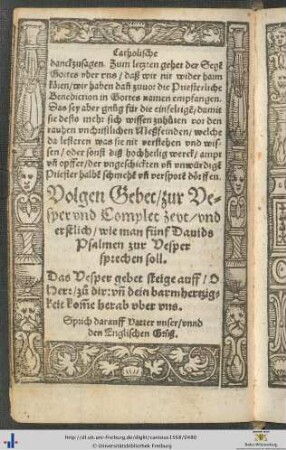 Catholische
danckzusagen. Zum letzten gehet der Segē
Gottes vber vns / daß wir nit wider haim
köen / wir haben dañ zuuor die Priesterliche
Benediction in Gottes namen empfangen.
Das sey aber gnůg für die einfeltigē / damit
sie desto mehr sich wissen zuhüten vor den
rauhen vnchristlichen Meßfeinden / welche
da lesteren was sie nit verstehen vnd wis-
sen / oder sonst diß hochheilig werck / ampt
vñ opffer / der vngeschickten vñ unwürdigē
Priester halbē schmehē vñ verspotē dörffen.
Volgen Gebet / zur Ve-
sper vnd Complet zeyt / vnd
erstlich / wie man fünf Dauids
Psalmen zur Vesper
sprechen soll.
Das Vesper gebet steige auff / O
Herr / zů dir: vñ dein barmhertzig-
keit kom̄e herab vber vns.
Sprich darauff Vatter vnser / vnnd
den Englischen Grůß.
http://dl.ub.uni-freiburg.de/diglit/canisius1568/0480
© Universitätsbibliothek Freiburg